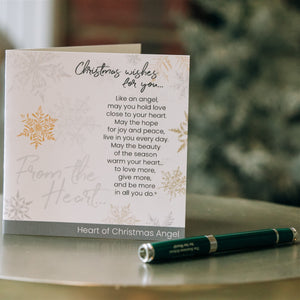 Christmas wishes
for you...
Like an angel,
may you hold love
close to your heart.
May the hope
for joy and peace,
live in you every day.
May the beauty
of the season
warm your heart...
to love more,
give more,
and be more
in all you do.®
From the
Heart...
Heart of Christmas Angel